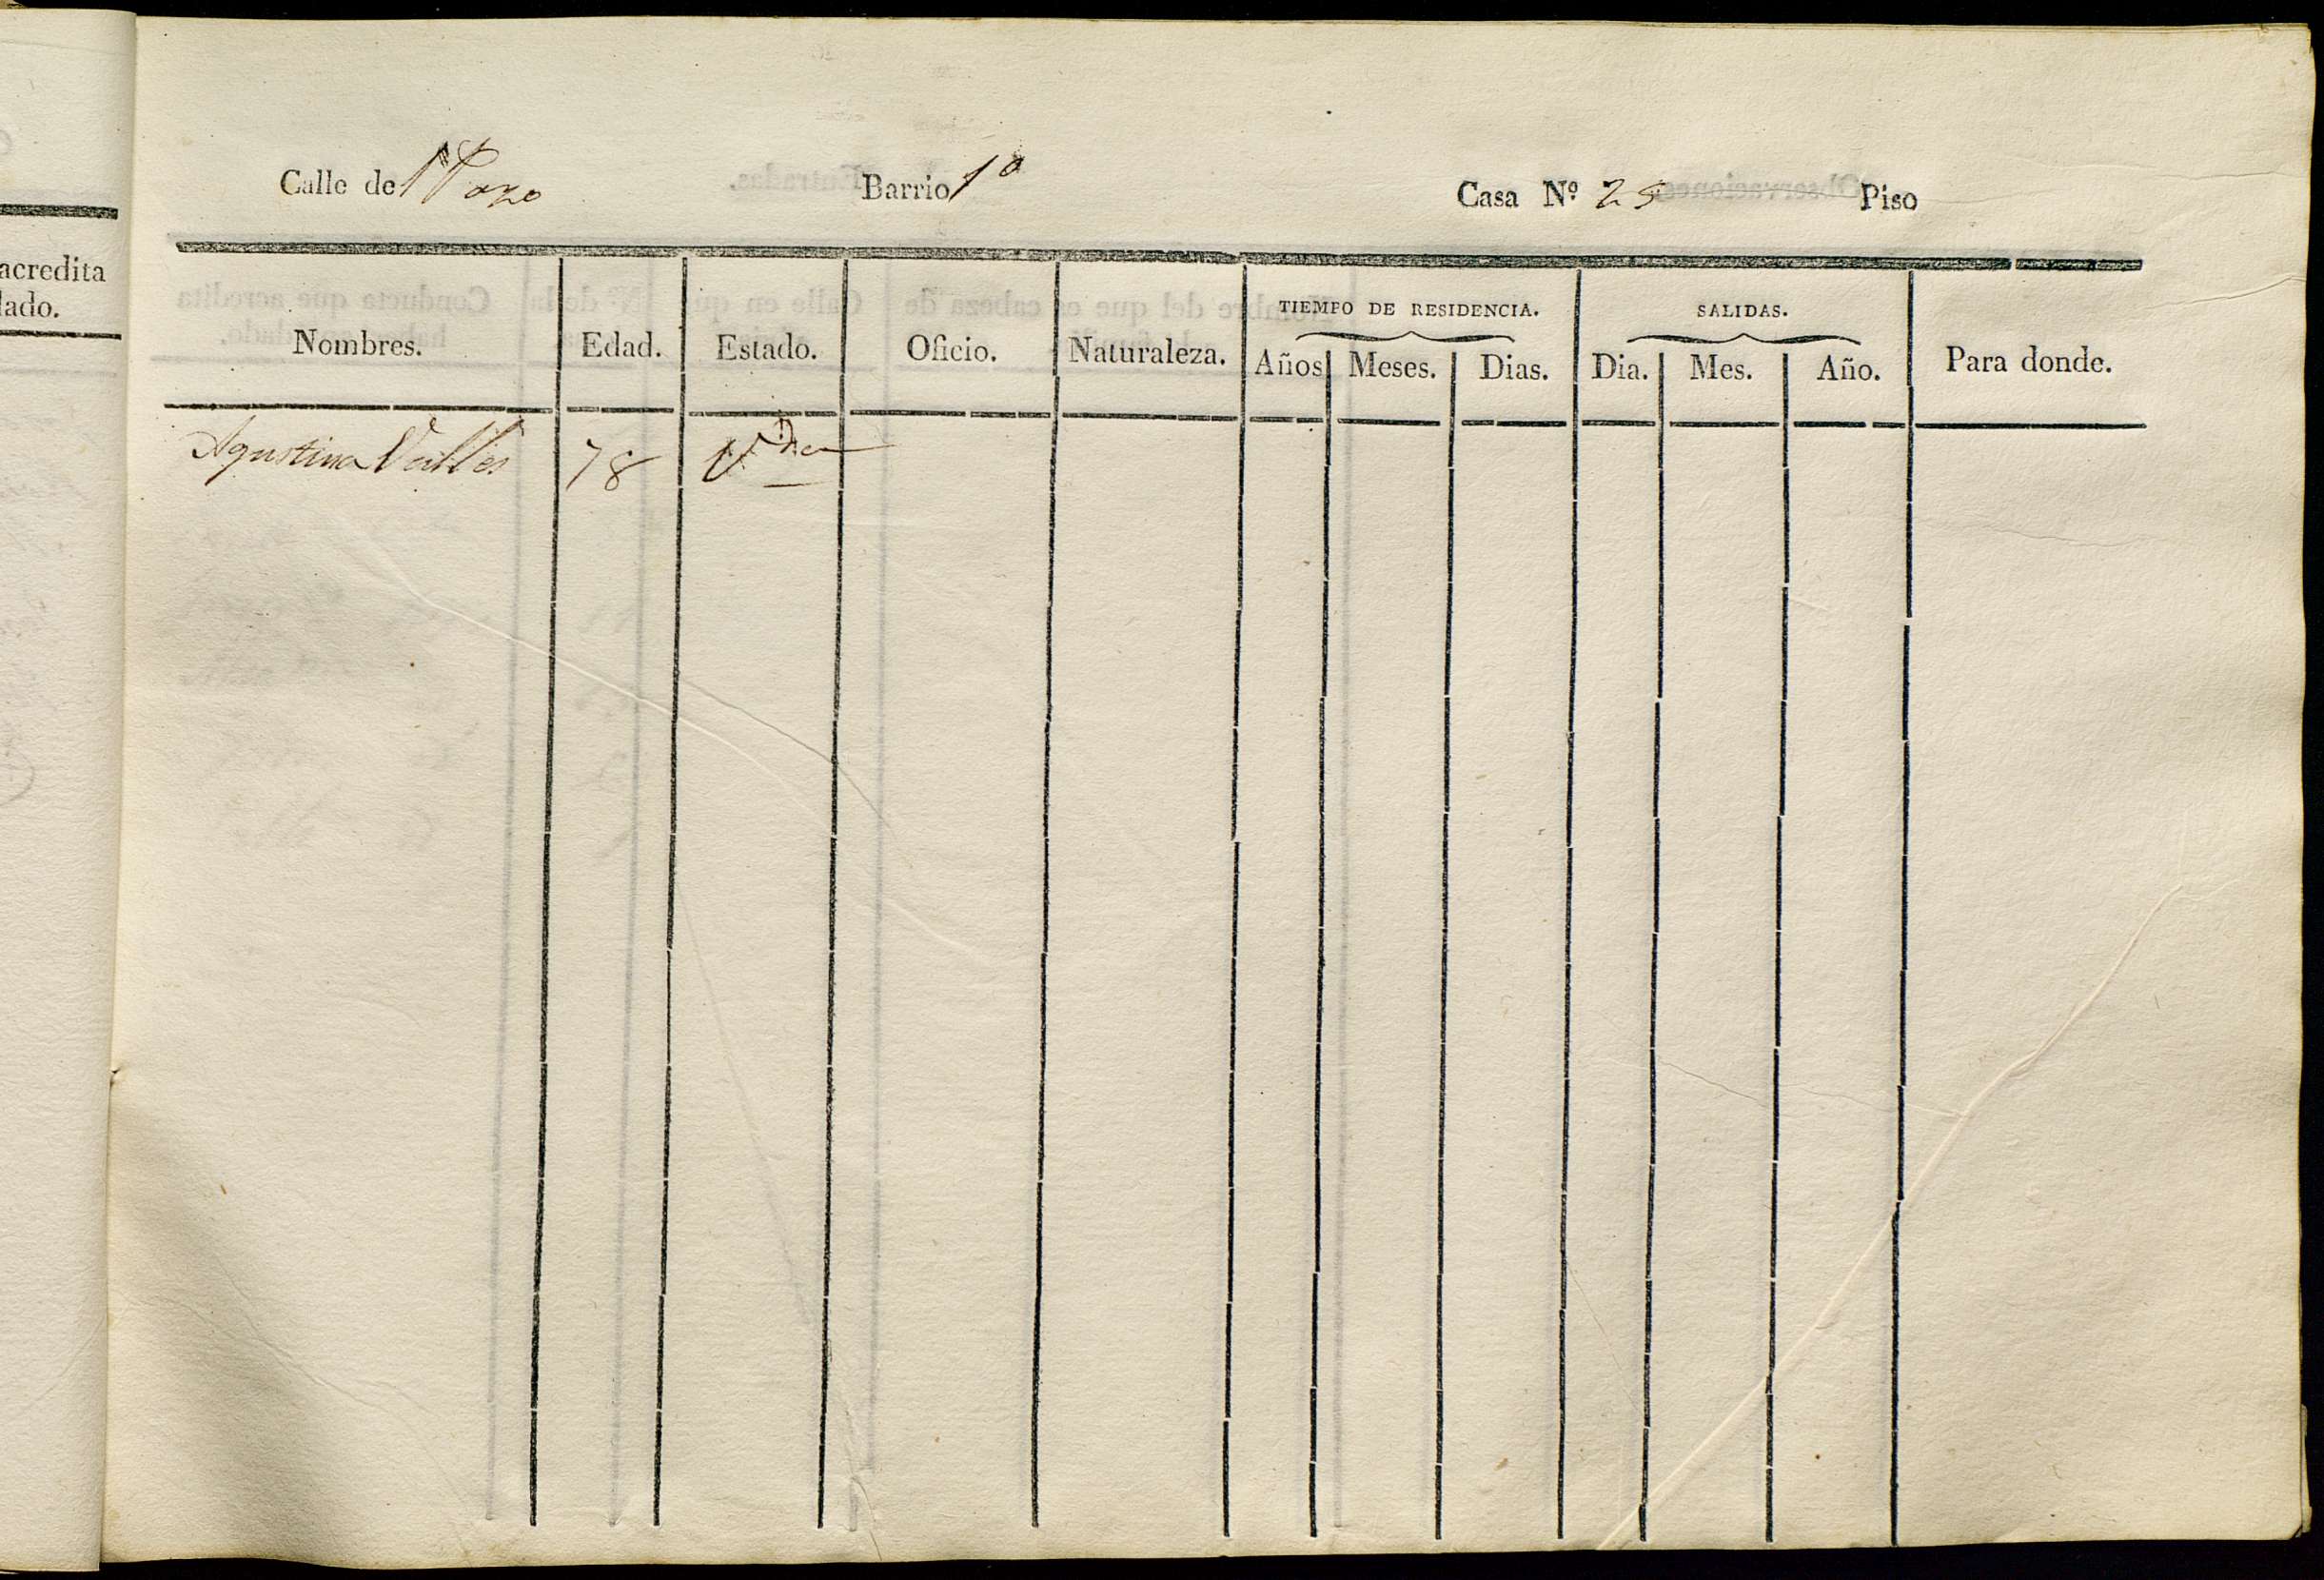 acredita
lado.
Calle del Pozo Barrio 1º Casa Nº 25 Piso
Nombres. Edad. Estado. Oficio. Naturaleza. TIEMPO DE RESIDENCIA. Años Meses. Dias. SALIDAS. Dia. Mes. Año. Para donde.
Agustina Valles 78 Vda